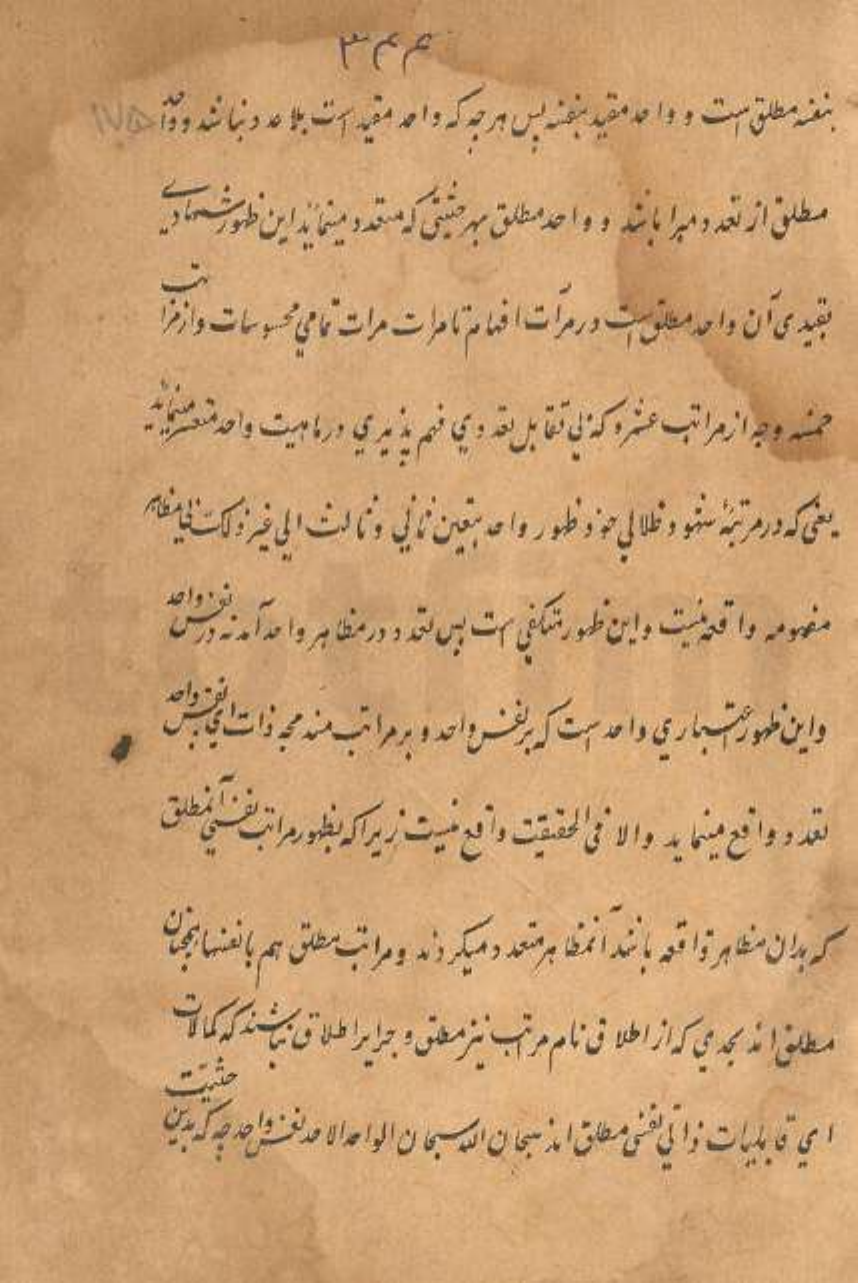 ۳۴۴
۱۷۵
بنفسه مطلق است و واحد مقید بنفسه پس هر چه که واحد مقید است بلا عدد نباشد و واحد
مطلق از تعدد مبرا باشد و واحد مطلق بهر حیثیتی که متعدد مینماید این ظهور شهادی
بقیدی آن واحد مطلق است در مرآت افهام تا مرات مرات تمامی محسوسات و از مراتب
خمسه وجه از مراتب عشره که بی تقابل تعددی فهم پذیری در ماهیت واحد متعسر مینماید
یعنی که در مرتبهٔ شهود ظلالی خود ظهور واحد بتعین ثانی و ثالث الی غیر ذلک فی مظاهر
مفهومه واقعه نیست و این ظهور است پس تعدد در مظاهر واحد آمد نه در نفس واحد
و این ظهور اعتباری واحد است که بر نفس واحد و بر مراتب ذات ای نفس واحد
تعدد واقع مینماید والا فی الحقیقت واقع نیست زیرا که بظهور مراتب نفسی آنمطلق
که بدان مظاهر واقعه باشد آنمظاهر متعدد میگردند و مراتب مطلق هم بانفسها همچنان
مطلق اند بحدی که از اطلاق نام مرتب نیز مطلق و جز ایراطلاق نباشند که کمالات
ای قابلیات ذاتی نفسی مطلق اند سبحان الله سبحان الواحد الاحد نفس واحد چه که بدین حیثیت